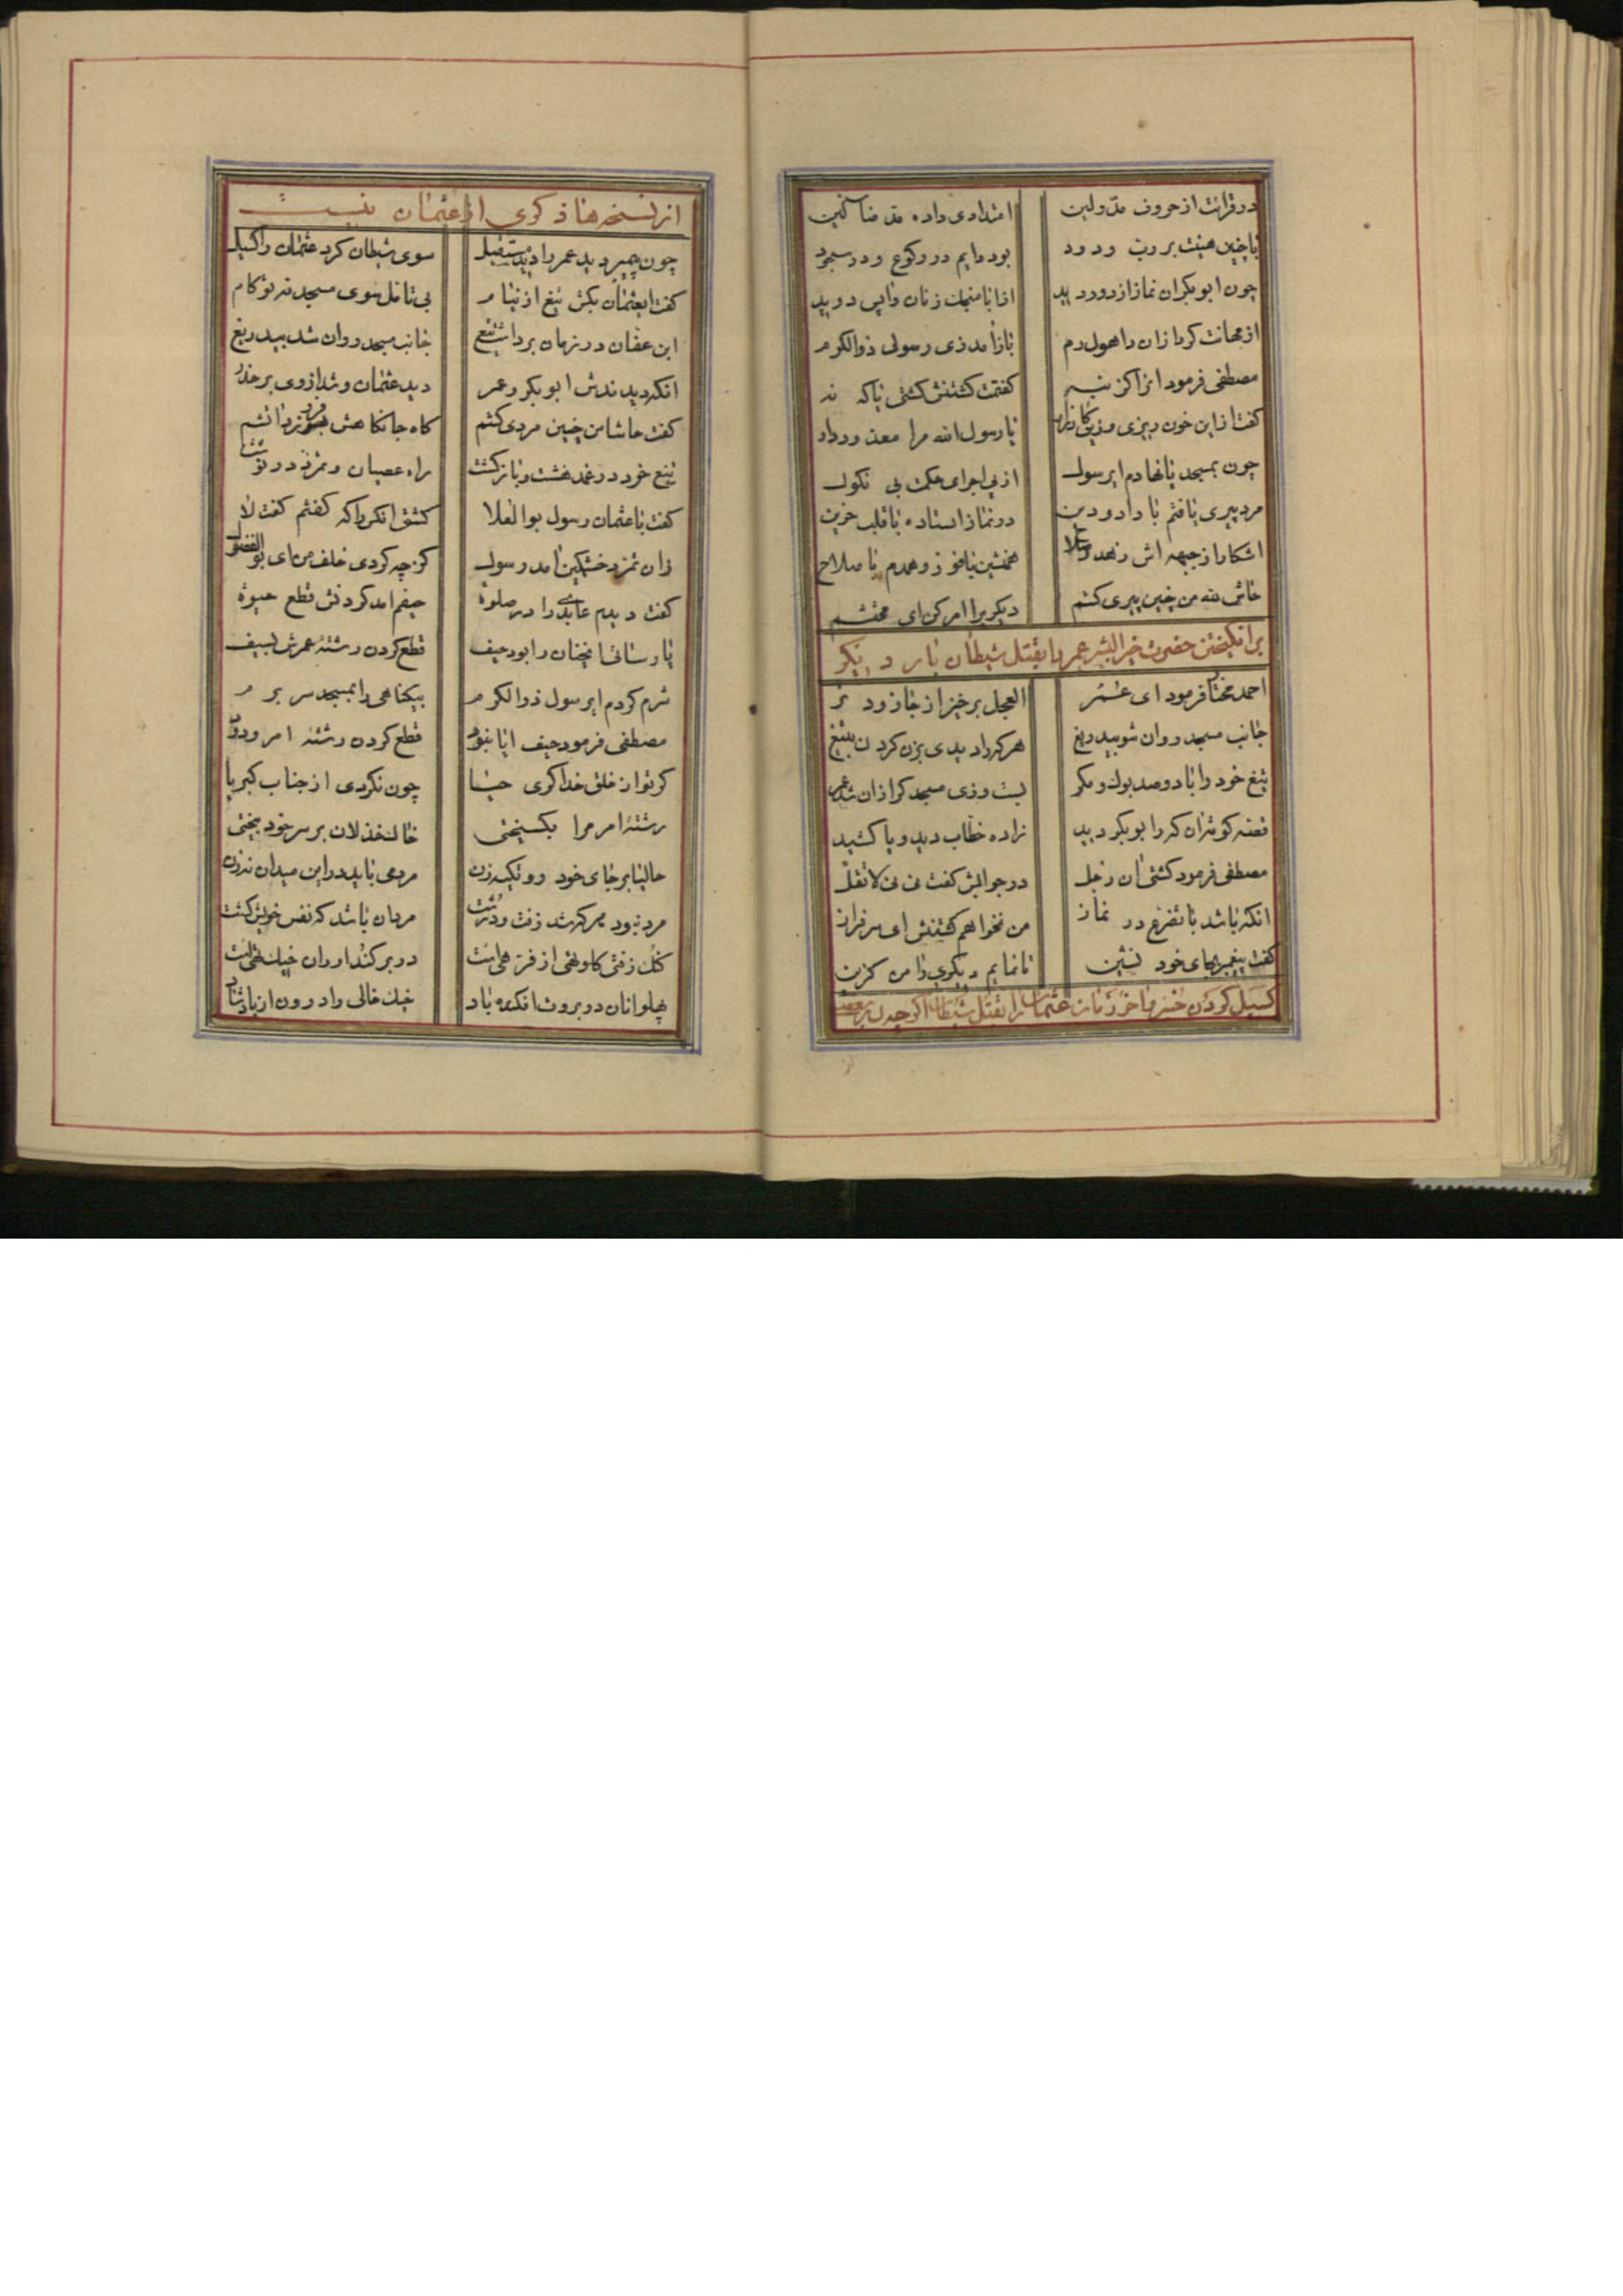 در قرائت از حروف مد و لین امتدادی داده مد ضالین
با چنین هیئت بر رب ودود بود دایم در رکوع و در سجود
چون ابوبکر ان نماز از دور دید از انابا منهیات زنان واپس دوید
از مهابت کرد ازان راهول رم باز آمد زی رسول ذوالکرم
مصطفی فرمود گفتمت کشتنش کشتی یا که نه
گفت ازین خون ریزی یا رسول الله مرا معذور دار
چون بمسجد پا نهادم ایرسول از پی اجرای حکمت بی نکول
مرد پیری یافتم با داد و دین در نماز استاده با قلب حزین
اشکارا از جبهه اش زهد و صلاح همنشین با فوز و همدم با صلاح
حاش لله من چنین پیری کشم دیگریرا امر کن ای محتشم
برانگیختن حضرت خیر البشر عمر را بقتل شیطان بار دیگر
احمد مختار فرمود ای عمر العجل برخیز از جا زودتر
جانب مسجد روان شو بیدریغ هر که را دیدی بزن گردن بتیغ
تیغ خود را با دو صد بوک و مکر بست و زی مسجد کرازان شد عمر
قصه کوته ان که را بوبکر دید زاده خطاب دید و پا کشید
مصطفی فرمود کشتی ان رجل در جوابش گفت نی نی لا تقل
انکه باشد با تضرع در نماز من نخواهم کشتنش ای سرفراز
گفت پیغمبر بجای خود نشین تا نمایم دیگری را من گزین
گسیل کردن عثمان را بقتل شیطان اگر چه در بعضی
از نسخه‌ها ذکری از عثمان نیست
چون پیمبر دید عمر را دید مستقیل سوی شیطان کرد عثمان را گسیل
گفت ایعثمان بکش تیغ از نیام بی تامل سوی مسجد نه تو گام
ابن عفان در زمان برداشت تیغ جانب مسجد روان شد بیدریغ
انکه دیدندش ابوبکر و عمر دید عثمان و شد از وی بر حذر
گفت حاشا من چنین مردی کشم گاه جانکاهش فرو نزد اتشم
تیغ خود در غمد هشت و بازگشت راه عصیان و تمرد در نوشت
گفت با عثمان رسول بو العلا کشتی انکرا که گفتم گفت لا
زان تمرد خشمگین امد رسول کز چه کردی خلف من ای بو الفضول
گفت دیدم عابدی را در صلوة حیفم امد کردنش قطع حیوة
پارسائی انچنان را بود حیف قطع کردن رشته عمرش بسیف
شرم کردم ایرسول ذوالکرم بیگناهی را بمسجد سر برم
مصطفی فرمود حیف ایا نبود قطع کردن رشته امر ودود
گر تو از خلق خدا کری حیا چون نکردی از جناب کبریا
رشته امر مرا بگسیختی خاک خذلان بر سر خود بیختی
حالیا بر جای خود رو تکیه زن مردمی باید در این میدان نه زن
مرد نبود هر که شد زفت و درشت مرد ان باشد که نفس خویش کشت
پهلوانان در بروت افکنده باد خیک خالی را درون از باد شاد